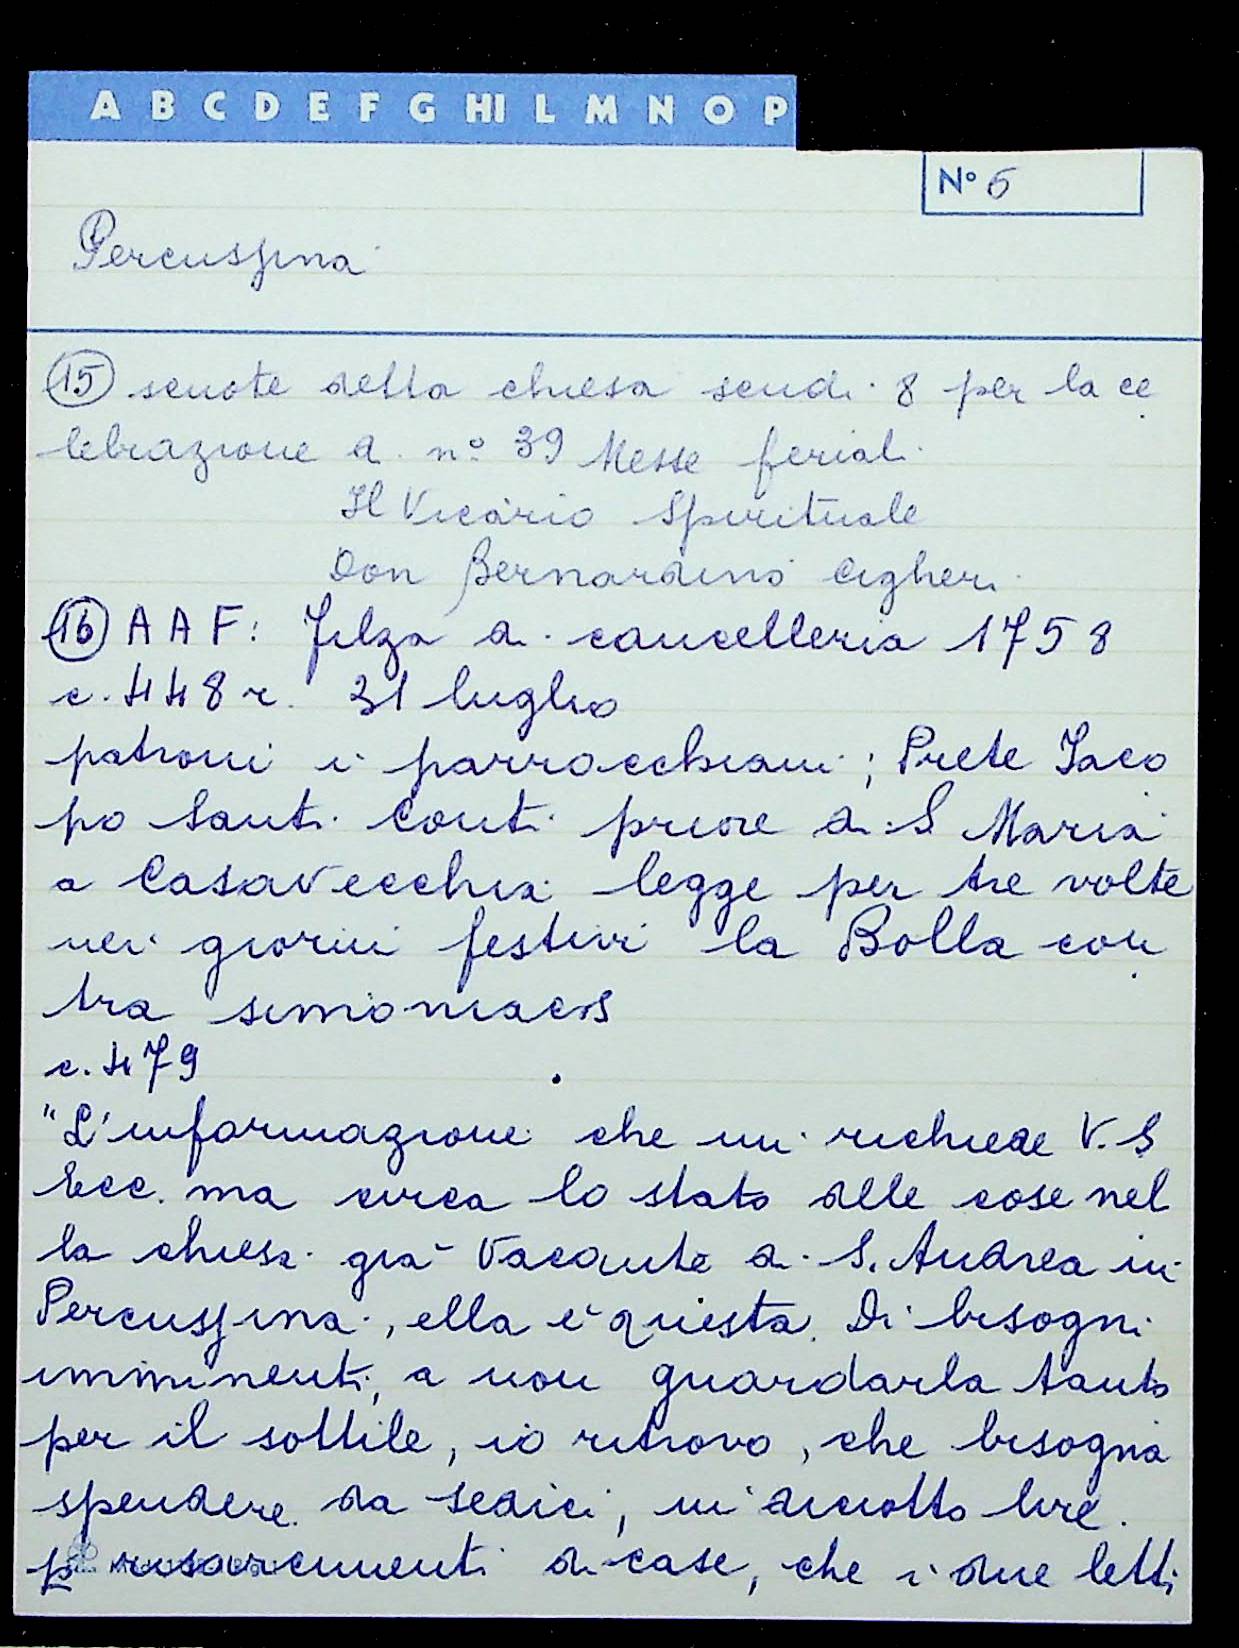 A B C D E F G HI L M N O P
N° 6
Percussina
15 scuote della chiesa scudi 8 per la ce
lebrazione di n° 39 Messe feriali
Il Vicario Spirituale
Don Bernardino Cigheri
16 A A F: Filza di cancelleria 1758
c. 448 r. 31 luglio
patroni i parrocchiani; Prete Iaco
po Santi Conti priore di S Maria
a Casavecchia legge per tre volte
nei giorni festivi la Bolla con
tra simoniacos
c. 479
"L'informazione che mi richiede V. S
Ecc. ma circa lo stato delle cose nel
la chiesa già vacante di S. Andrea in
Percussina, ella è questa. Di bisogni
imminenti, a non guardarla tanto
per il sottile, io ritrovo, che bisogna
spendere da sedici, in diciotto lire
p risarcimenti di case, che i due letti